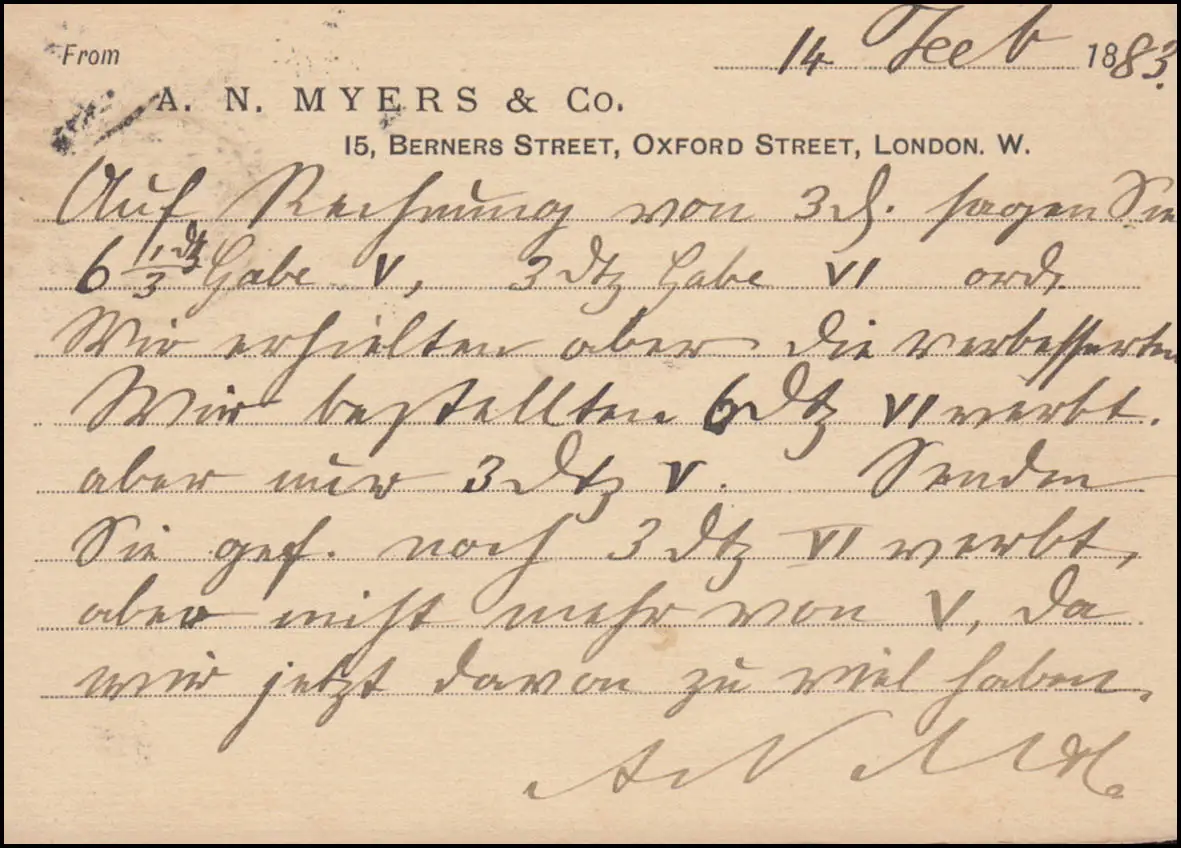 From
14 Feb 1883.
A. N. MYERS & Co.
15, BERNERS STREET, OXFORD STREET, LONDON. W.
Auf Rechnung von 3 d. sagen Sie
6 1/3 dtz Gabe V, 3 dtz Gabe VI ord.
Wir erhielten aber die verbesserten
Wir bestellten 6 dtz VI verbt.
aber nur 3 dtz V. Senden
Sie gef. noch 3 dtz VI verbt,
aber nicht mehr von V, da
wir jetzt davon zu viel haben.
A N M